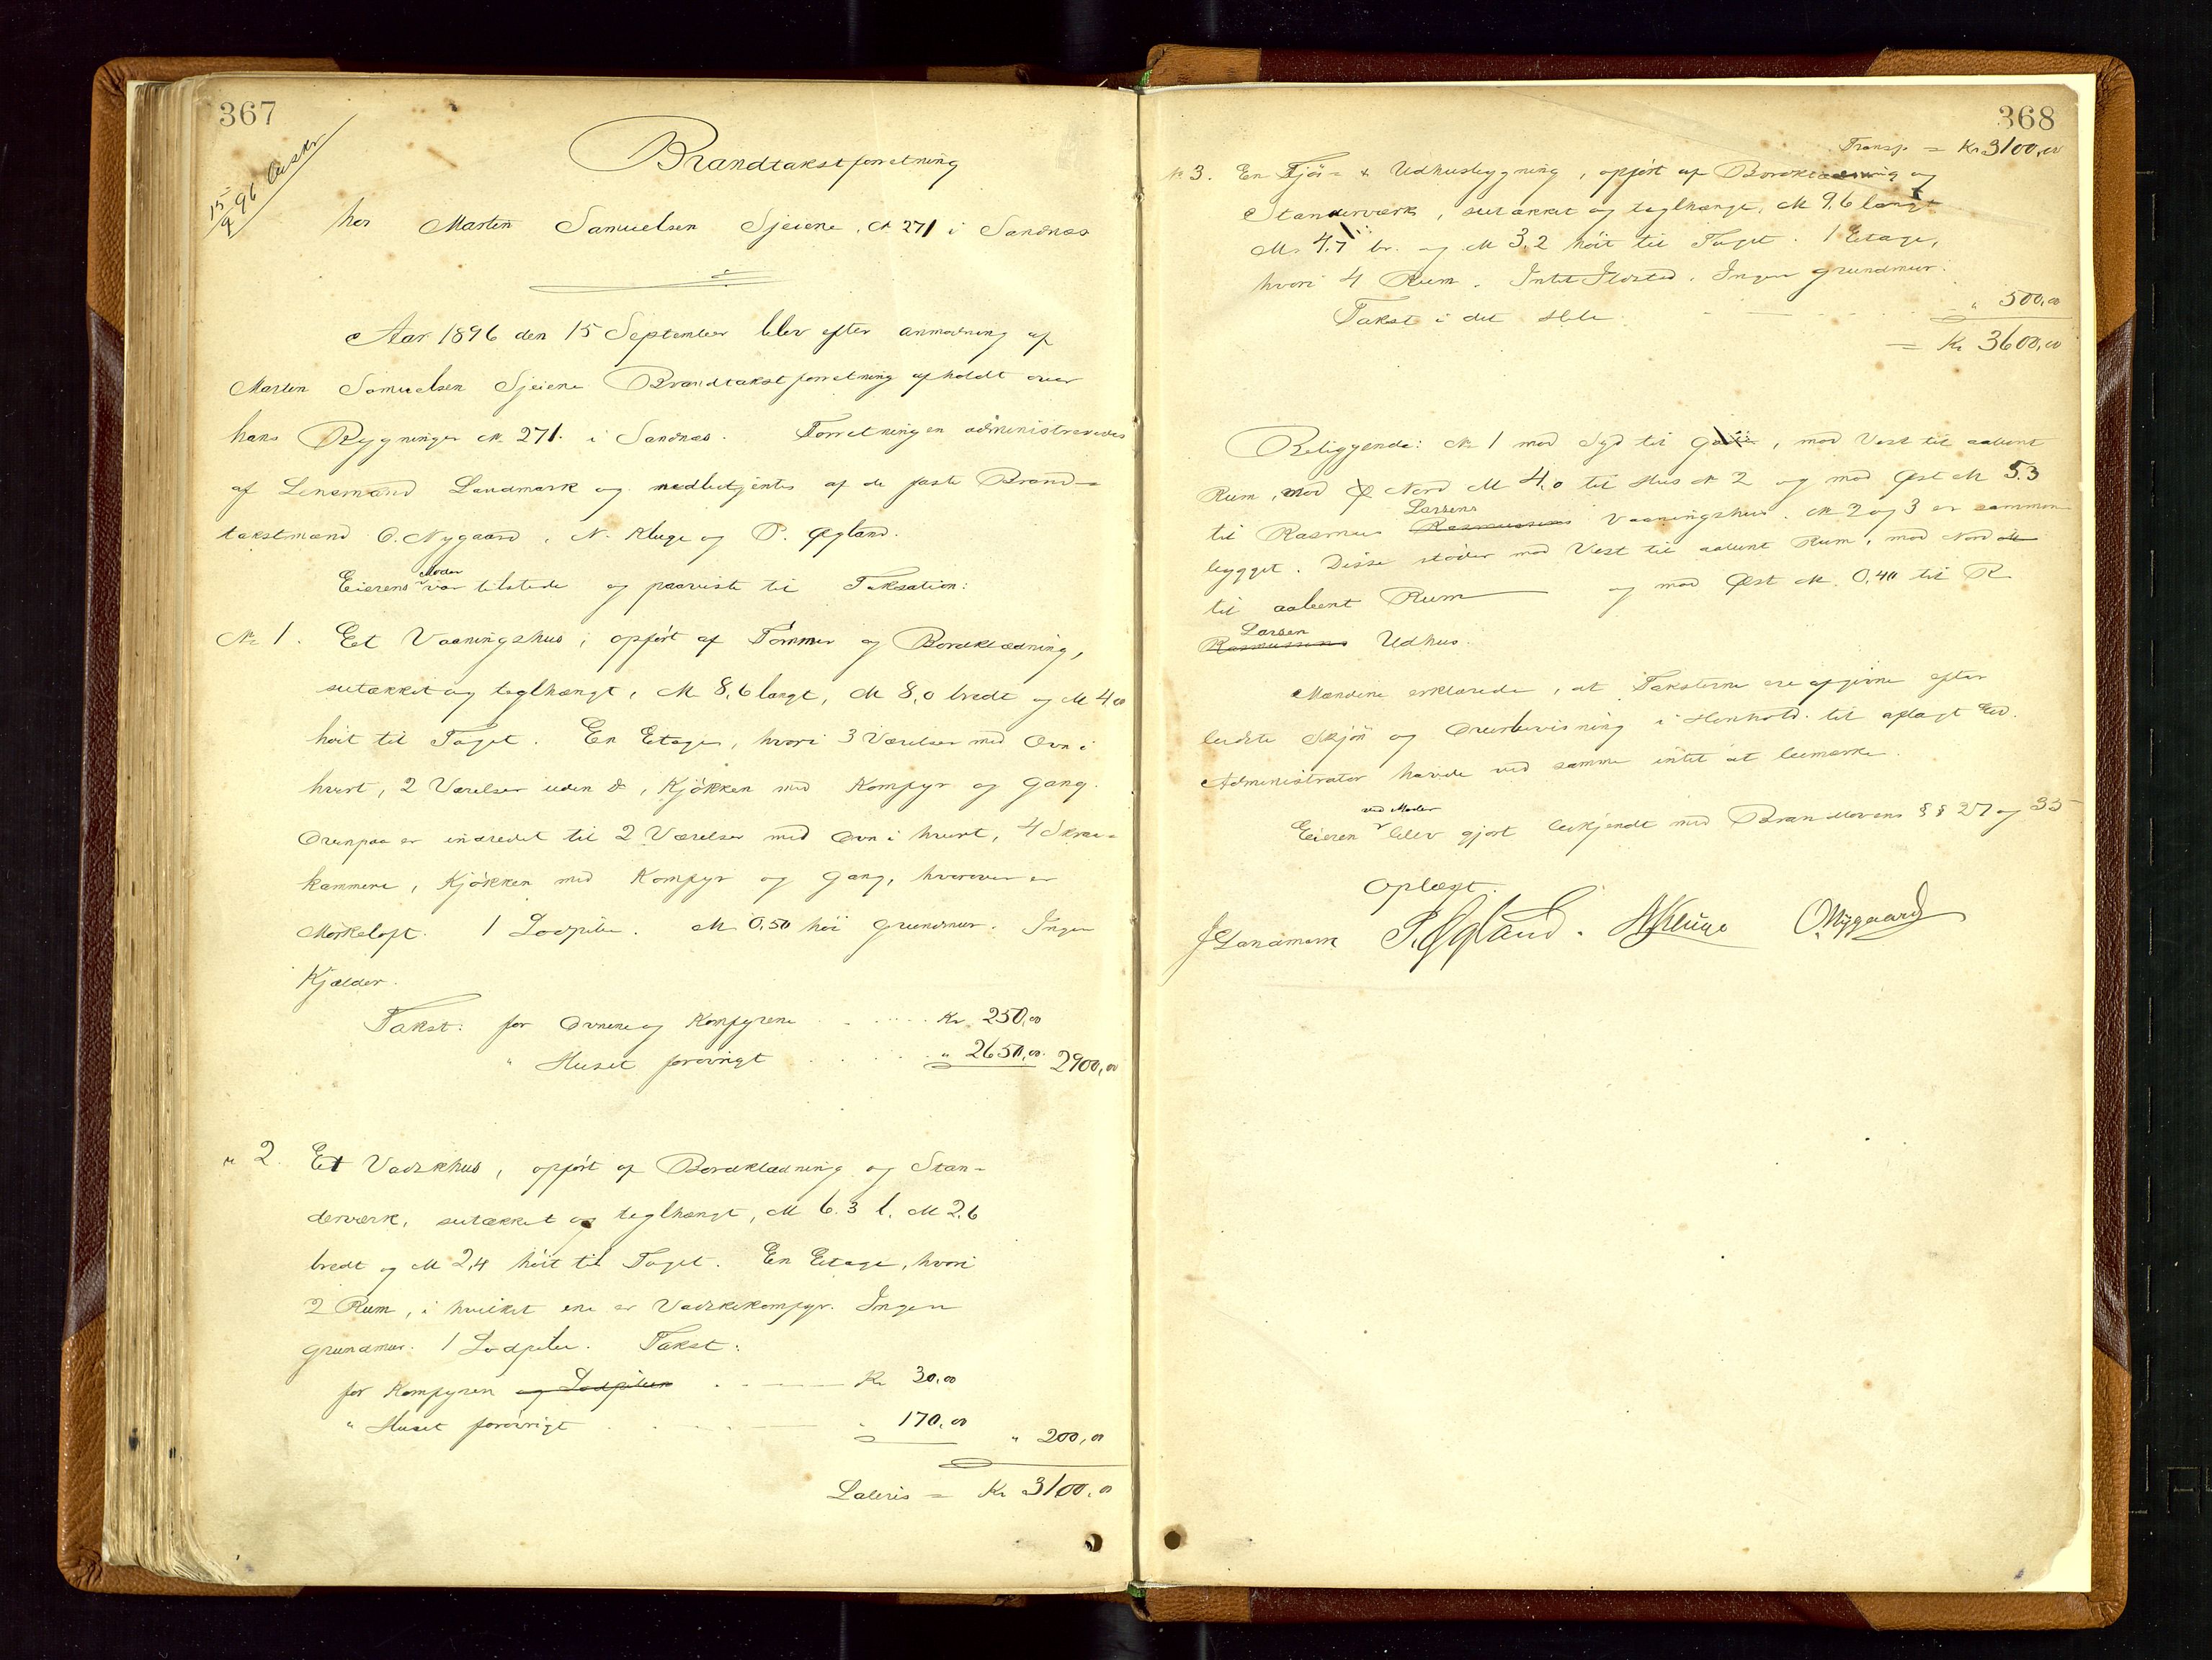 367
15/9 96 Udskr
Brandtakstforretning
hos Marten Samuelsen Sjeiene, № 271 i Sandnæs
Aar 1896 den 15 September blev efter anmodning af
Marten Samuelsen Sjeiene Brandtakstforretning afholdt over
hans Bygninger № 271. i Sandnæs. Forretningen administreredes
af Lensmand Landmark og medbetjentes af de faste Brand-
takstmænd O. Nygaard, N. Kluge og P. Øgland.
Eierens Moder var tilstede og paaviste til Taksation:
№ 1. Et Vaaningshus, opført af Tømmer og Bordklædning,
sutækket og teglhængt, M 8,6 langt, M 8,0 bredt og M 4,0
høit til Taget. En Etage, hvori 3 Værelser med Ovn i
hvert, 2 Værelser uden do, Kjøkken med Komfyr og Gang.
Ovenpaa er indredet til 2 Værelser med Ovn i hvert, 4 Skraa-
kammere, Kjøkken med Komfyr og Gang, hvorover er
Mørkeloft. 1 Lodpibe. M 0,50 høi Grundmur. Ingen
Kjælder.
Takst: for Ovnene og Komfyrene Kr 250,00
" Huset forøvrigt " 2650,00 2900,00
" 2. Et Vadskhus, opført af Bordklædning og Stan-
derværk, sutækket og teglhængt, M 6.3 l. M 2,6
bredt og M 2,4 høit til Taget. En Etage, hvori
2 Rum, i hvilket ene er Vadskekomfyr. Ingen
Grundmur. 1 Lodpibe. Takst:
for Komfyren og Lodpiben Kr 30,00
" Huset forøvrigt " 170,00 " 200,00
Lateris = Kr 3100,00
368
Transp = Kr 3100,00
№ 3. En Fjøs- & Udhusbygning, opført af Bordklædning og
Standerværk, sutækket og teglhængt, M 9,6 langt
M 4.7 br. og M 3,2 høit til Taget. 1 Etage,
hvori 4 Rum. Intet Ildsted. Ingen Grundmur.
Takst i det Hele " 500,00
= Kr 3600,00
Beliggende: № 1 mod Syd til Gade, mod Vest til aabent
Rum, mod Ø Nord M 4,0 til Hus № 2 og mod Øst M 5.3
til Rasmus Rasmussens Larsens Vaaningshus. № 2 og 3 er sammen
bygget. Disse støder mod Vest til aabent Rum, mod Nord
til aabent Rum og mod Øst M. 0,40 til R
Rasmussens Larsen Udhus.
Mændene erklærede, at Taksterne ere afgivne efter
bedste Skjøn og Overbevisning i Henhold til aflagt Ed.
Administrator havde ved samme intet at bemærke.
Eieren ved Moder blev gjort bekjendt med Brandlovens §§ 27 og 35
Oplæst.
J Landmark P. Øgland. N Kluge O. Nygaard